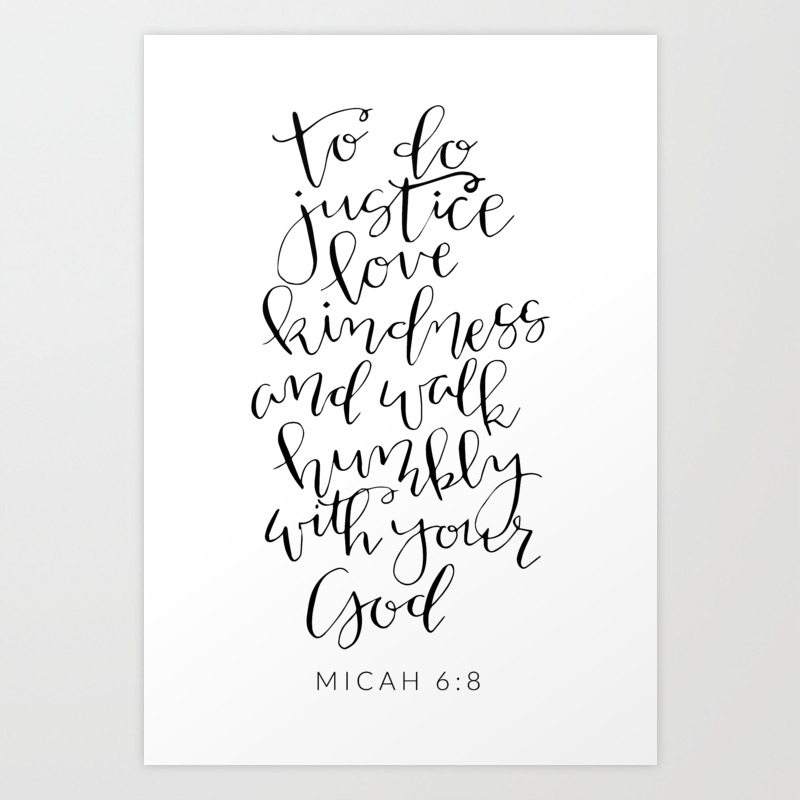 to do
justice
love
kindness
and walk
humbly
with your
God
MICAH 6:8